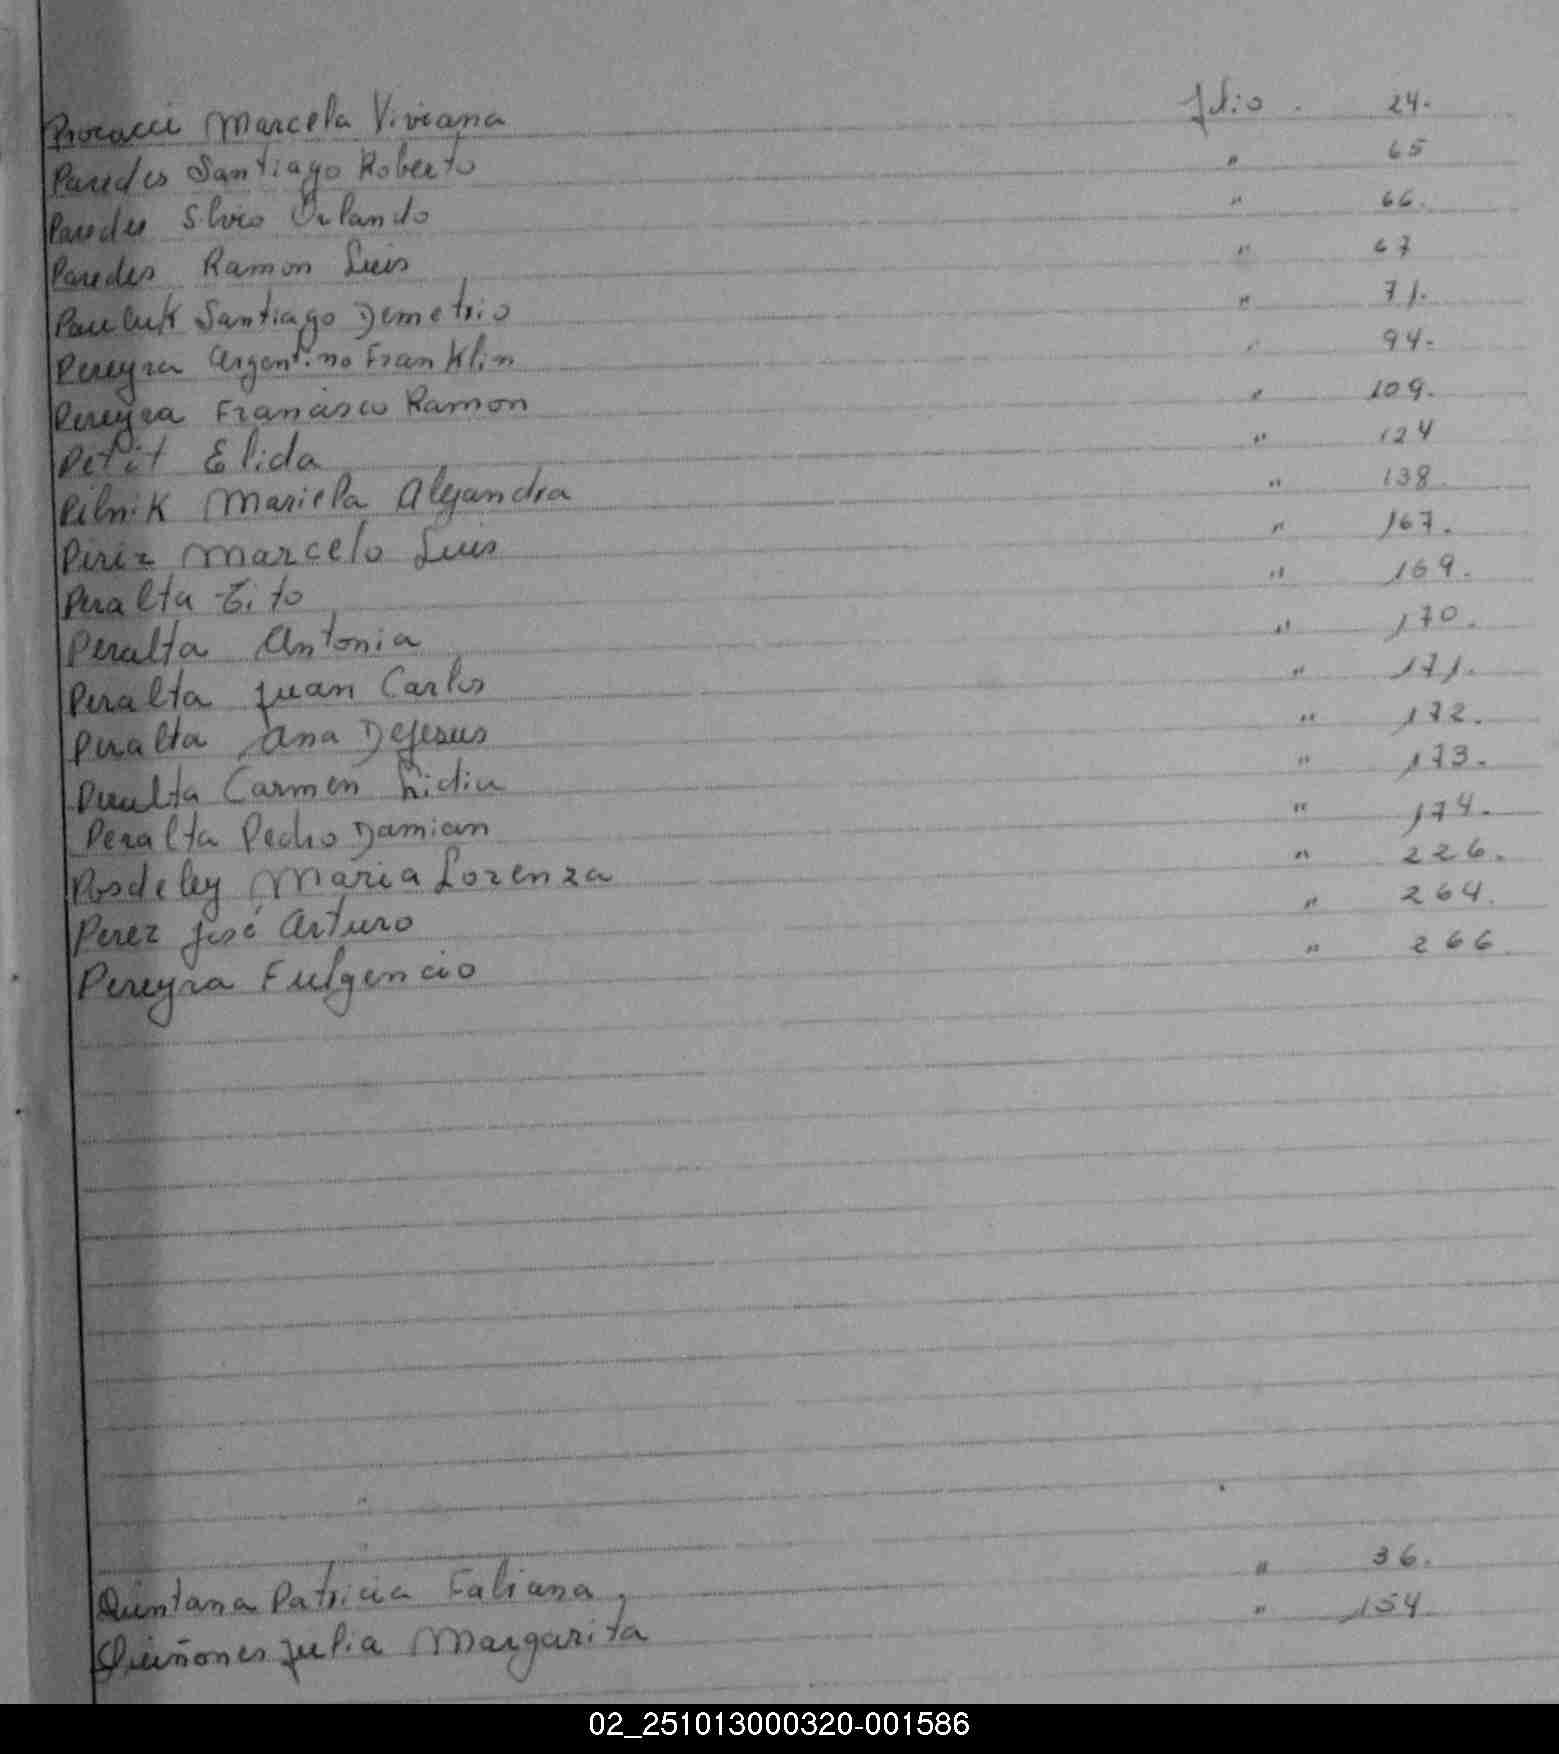 Procacci Marcela Viviana folio . 24.
Paredes Santiago Roberto " 65
Paredes Slvio Orlando " 66.
Paredes Ramon Luis " 67
Pauluk Santiago Demetrio " 71.
Pereyra Argentino Franklin " 94.
Pereyra Francisco Ramon " 109.
Petit Elida " 124
Pilnik Mariela Alejandra " 138.
Piriz Marcelo Luis " 167.
Peralta Tito " 169.
Peralta Antonia " 170.
Peralta Juan Carlos " 171.
Peralta Ana Dejesus " 172.
Peralta Carmen Lidia " 173.
Peralta Pedro Damian " 174.
Posdeley Maria Lorenza " 226.
Perez José Arturo " 264.
Pereyra Fulgencio " 266
Quintana Patricia Faliana " 36.
Quiñones Julia Margarita " 154
02_251013000320-001586